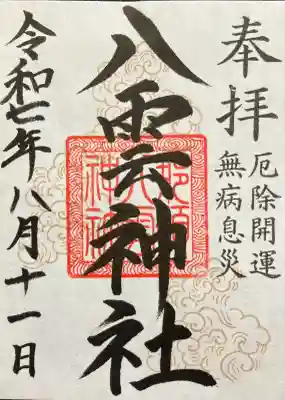 奉拝
厄除開運
無病息災
八雲神社
令和七年八月十一日